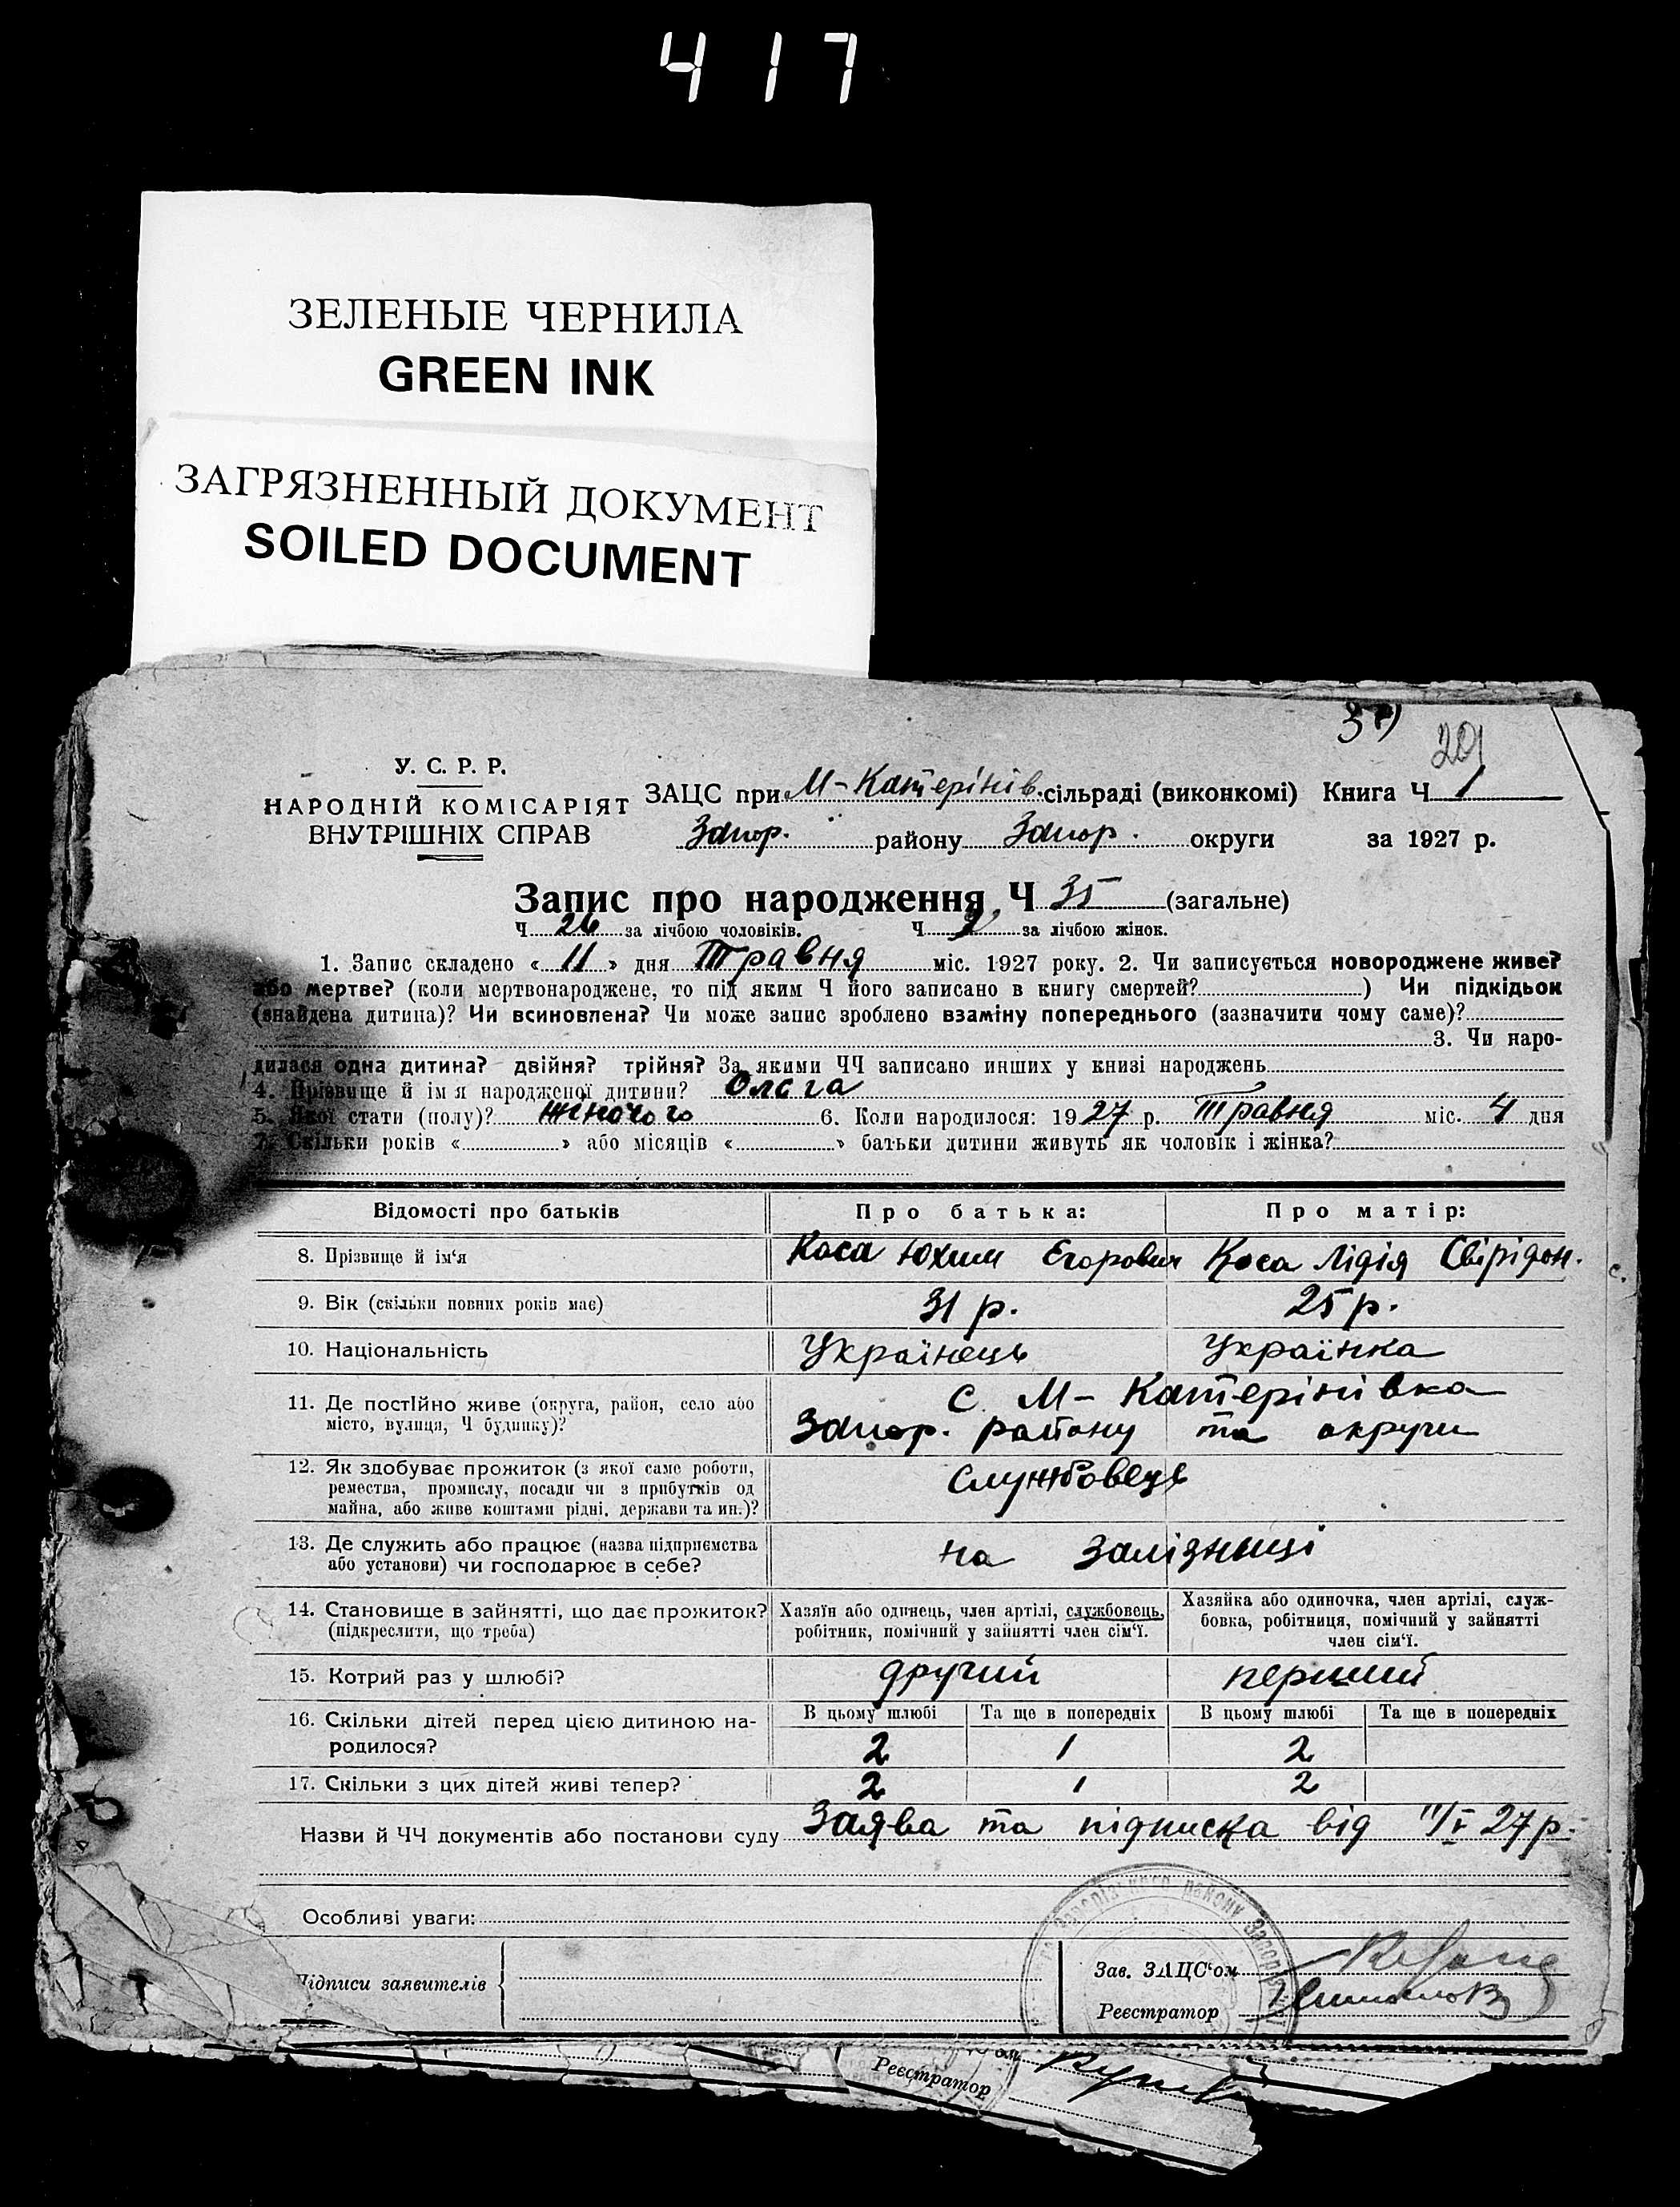 417
ЗЕЛЕНЫЕ ЧЕРНИЛА
GREEN INK
ЗАГРЯЗНЕННЫЙ ДОКУМЕНТ
SOILED DOCUMENT
201
У. С. Р. Р.
НАРОДНІЙ КОМІСАРІЯТ
ВНУТРІШНІХ СПРАВ
ЗАЦС при М-Катерінів. сільраді (виконкомі) Книга Ч 1
Запор. району Запор. округи за 1927 р.
Запис про народження Ч 35 (загальне)
Ч 26 за лічбою чоловіків. Ч 9 за лічбою жінок.
1. Запис складено « 11 » дня Травня міс. 1927 року. 2. Чи записується новороджене живе?
або мертве? (коли мертвонароджене, то під яким Ч його записано в книгу смертей? ) Чи підкідьок
(знайдена дитина)? Чи всиновлена? Чи може запис зроблено взаміну попереднього (зазначити чому саме)?
3. Чи наро-
дилася одна дитина? двійня? трійня? За якими ЧЧ записано инших у книзі народжень
4. Прізвище й ім'я народженої дитини? Ольга
5. Якої стати (полу)? жіночого 6. Коли народилося: 1927 р. Травня міс. 4 дня
7. Скільки років « » або місяців « » батьки дитини живуть як чоловік і жінка?
Відомості про батьків Про батька: Про матір:
8. Прізвище й ім'я Коса Юхим Єгорович Коса Лідія Свірідон.
9. Вік (скільки повних років має) 31 р. 25 р.
10. Національність Українець Українка
11. Де постійно живе (округа, район, село або
місто, вулиця, Ч будинку)?
с. М-Катерінівка
Запор. району та округи
12. Як здобуває прожиток (з якої саме роботи,
ремества, промислу, посади чи з прибутків од
майна, або живе коштами рідні, держави та ин.)?
службовець
13. Де служить або працює (назва підприємства
або установи) чи господарює в себе?
на залізниці
14. Становище в зайнятті, що дає прожиток?
(підкреслити, що треба)
Хазяїн або одинець, член артілі, службовець,
робітник, помічний у зайнятті член сім'ї.
Хазяйка або одиночка, член артілі, служ-
бовка, робітниця, помічний у зайнятті
член сім'ї.
15. Котрий раз у шлюбі? другий перший
16. Скільки дітей перед цією дитиною на-
родилося?
В цьому шлюбі Та ще в попередніх В цьому шлюбі Та ще в попередніх
2 1 2
17. Скільки з цих дітей живі тепер? 2 1 2
Назви й ЧЧ документів або постанови суду Заява та підписка від 11/V 27 р.
Особливі уваги:
Підписи заявителів
Зав. ЗАЦС'ом
Реєстратор
Реєстратор